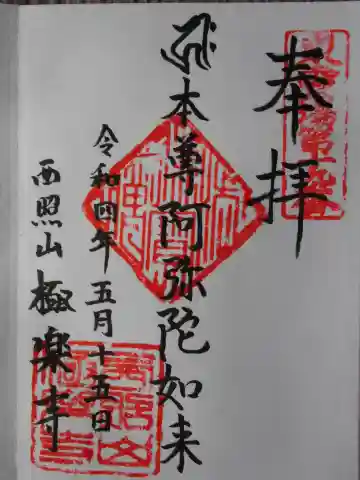 奉拝
本尊阿弥陀如来
令和四年五月十五日
西照山極楽寺